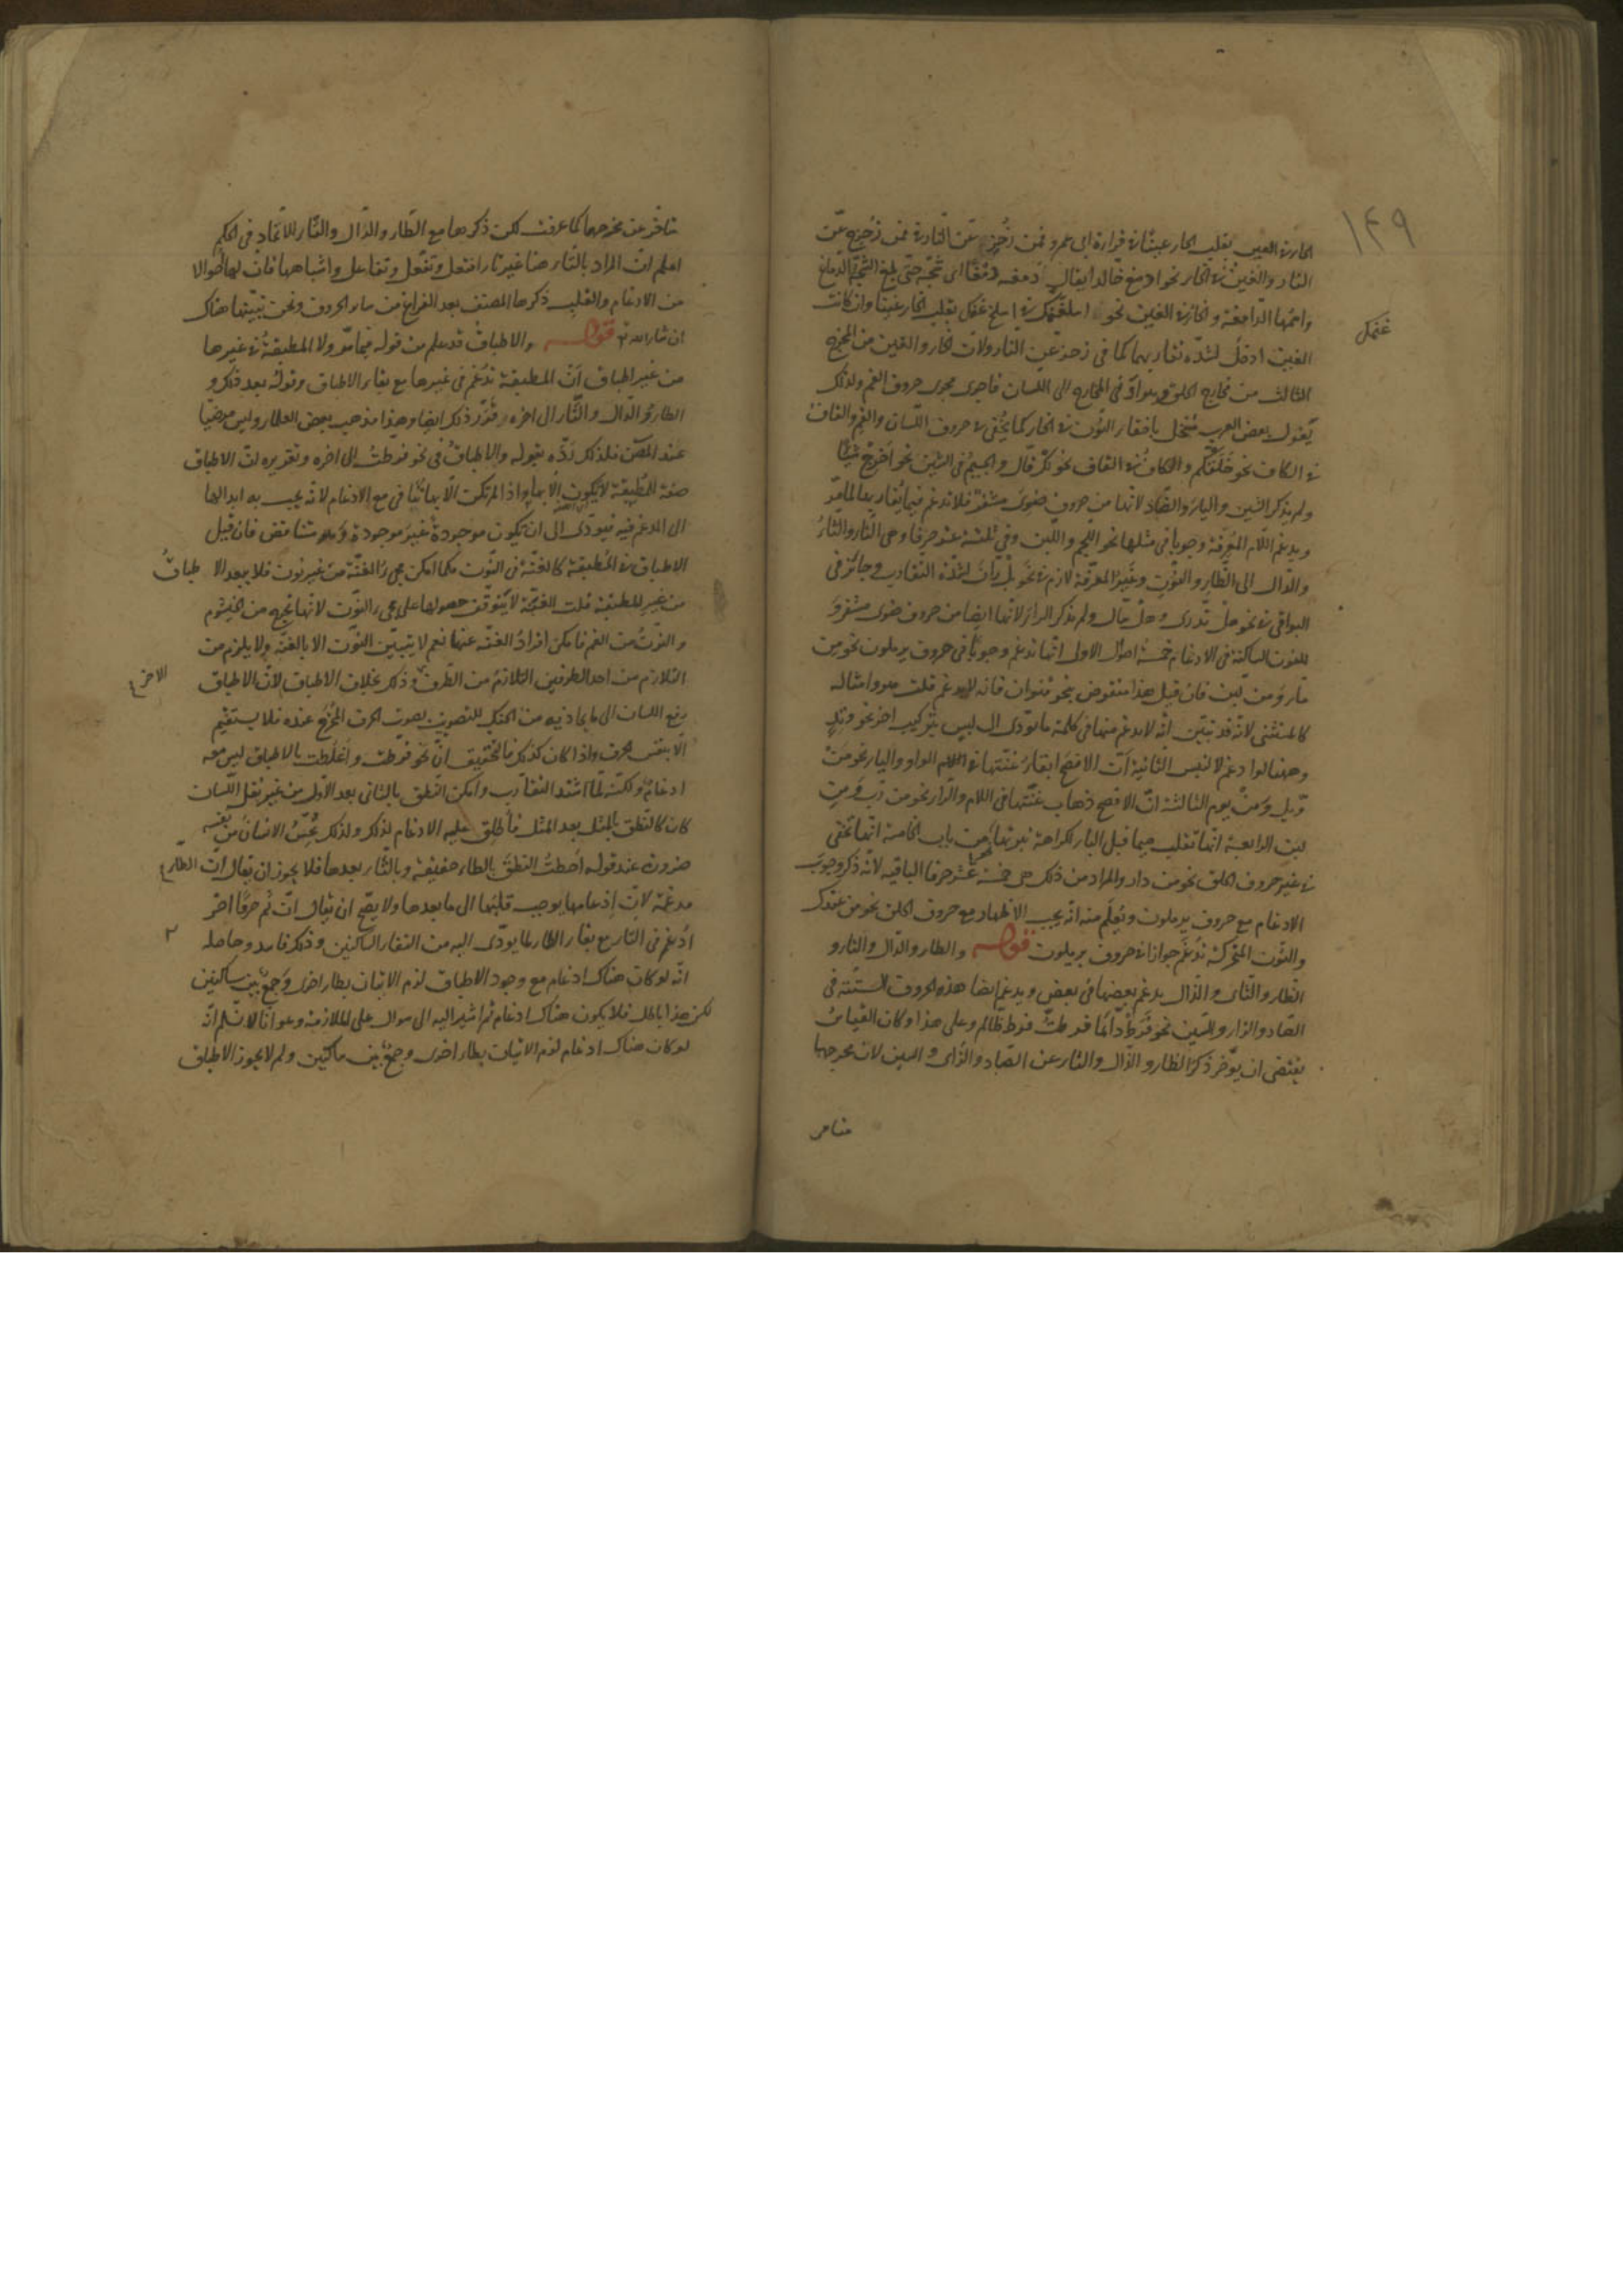 ١٤٩
الحاء في العين بقلب الحاء عينا في قراءة ابي عمرو فمن زحزح عن النار
النار والغين في الخاء نحو ادمغ خالدا يقال دمغه دمغا اي شجه حتى بلغ الشجة الدماغ
واسمها الدامغة والخاء في الغين نحو اسلخ غنمك بقلب الخاء غينا وان كانت
غنمك
الغين ادخل لشدة تقاربهما كما في زحزح عن النار ولان الخاء والغين من المخرج
الثالث من مخارج الحلق في المخارج الى اللسان فاجرى مجرى حروف الفم ولذلك
يقول بعض العرب منخل باخفاء النون في الخاء كما يخفى في حروف اللسان والفم والقاف
في الكاف نحو خلقكم والكاف في القاف نحو لك قال والجيم في الشين نحو اخرج شيئا
ولم يذكر الشين والياء والضاد لانها من حروف ضوى مشفر فلا تدغم فيما يقاربها لما مر
ويدغم اللام المعرفة وجوبا في مثلها نحو اللحم واللبن وفي ثلثة عشر حرفا وهي التاء والثاء
والدال الى الظاء والنون وغير المعرفة لازم في نحو بل ران لشدة التقارب وجائز في
البواقي في نحو هل تدرى وهل قال ولم يذكر الراء لانها ايضا من حروف ضوى مشفر و
للنون الساكنة في الادغام خمسة احوال الاول انها تدغم وجوبا في حروف يرملون نحو من
ماء ومن لبن فان قيل هذا منقوض بنحو قنوان فانه لا يدغم قلت هو وامثاله
كالمستثنى لانه قد تبين انه لا يدغم منها في كلمة ما يؤدى الى لبس بتركيب اخر نحو وتد
وههنا لو ادغم لالتبس الثانية ان الافصح ابقاء غنتها في الواو والياء نحو من
ويل ومن يوم الثالثة ان الافصح ذهاب غنتها في اللام والراء نحو من رب ومن
لبن الرابعة انها تقلب ميما قبل الباء لكراهة نبرتها نحو من باب الخامسة انها تخفى
في غير حروف الحلق نحو من دار والمراد من ذلك هي خمسة عشر حرفا الباقية لانه ذكر وجوب
الادغام مع حروف يرملون ويعلم منه انه يجب الاظهار مع حروف الحلق نحو من عندك
والنون المتحركة تدغم جوازا في حروف يرملون قوله والطاء والدال والتاء و
الظاء والثاء والذال يدغم بعضها في بعض ويدغم ايضا هذه الحروف الستة في
الصاد والزاء والسين نحو فرط دائما فرط ظالم وعلى هذا وكان القياس
يقتضي ان يؤخر ذكر الظاء والذال والثاء عن الصاد والزاى والسين لان مخرجها
متاخر
متاخر عن مخرجها كما عرفت لكن ذكرها مع الطاء والدال والتاء للاتحاد في الحكم
اعلم ان المراد بالتاء هنا غير تاء افتعل وتفعل وتفاعل واشباهها فان لها احوالا
من الادغام والقلب ذكرها المصنف بعد الفراغ من سائر الحروف ونحن نبينها هناك
ان شاء الله تع قوله والاطباق قد علم من قوله فيما مر ولا المطبقة في غيرها
من غير اطباق ان المطبقة تدغم في غيرها مع بقاء الاطباق وقوله بعد ذلك و
الطاء والدال والتاء الى اخره قرر ذلك ايضا وهذا مذهب بعض العلماء وليس مرضيا
عند المص فلذلك رده بقوله والاطباق في نحو فرطت الى اخره وتقريره ان الاطباق
صفة المطبقة لا يكون الا بها واذا لم تكن الا بها تنافى مع الادغام لانه يجب به ابدالها
الى المدغم فيه فيؤدى الى ان تكون موجودة غير موجودة وهو متناقض فان قيل
الاطباق في المطبقة كالغنة في النون فكما امكن مجئ الغنة من غير نون فلا يبعد الاطباق
من غير المطبقة قلت الغنة لا يتوقف حصولها على مجئ النون لانها تجئ من الخيشوم
والنون من الفم فامكن افراد الغنة عنها نعم لا يتبين النون الا بالغنة ولا يلزم من
التلازم من احد الطرفين التلازم من الطرف الاخر وذلك بخلاف الاطباق لان الاطباق
رفع اللسان الى ما يحاذيه من الحنك للتصويت بصوت الحرف المخرج عنده فلا يستقيم
الا بنفس الحرف واذا كان كذلك فالتحقيق ان نحو فرطت واغلظت بالاطباق ليس معه
ادغام ولكنه لما اشتد التقارب وامكن النطق بالثاني بعد الاول من غير نقل اللسان
كان كالنطق بالمثل بعد المثل فاطلق عليه الادغام لذلك ولذلك يحس الانسان من نفسه
ضرورة عند قوله احطت النطق بالطاء حقيقة وبالتاء بعدها فلا يجوز ان يقال ان الطاء
مدغمة لان ادغامها يوجب قلبها الى ما بعدها ولا يصح ان يقال ان ثم حرفا اخر
ادغم في التاء مع بقاء الطاء لما يؤدى اليه من التقاء الساكنين وذلك فاسد وحاصله
انه لو كان هناك ادغام مع وجود الاطباق لزم الاتيان بطاء اخرى وجمع بين ساكنين
لكن هذا باطل فلا يكون هناك ادغام ثم اشير اليه الى سوال على الملازمة وهو انا لا نسلم انه
لو كان هناك ادغام لزم الاتيان بطاء اخرى وجمع بين ساكنين ولم لا يجوز الاطباق